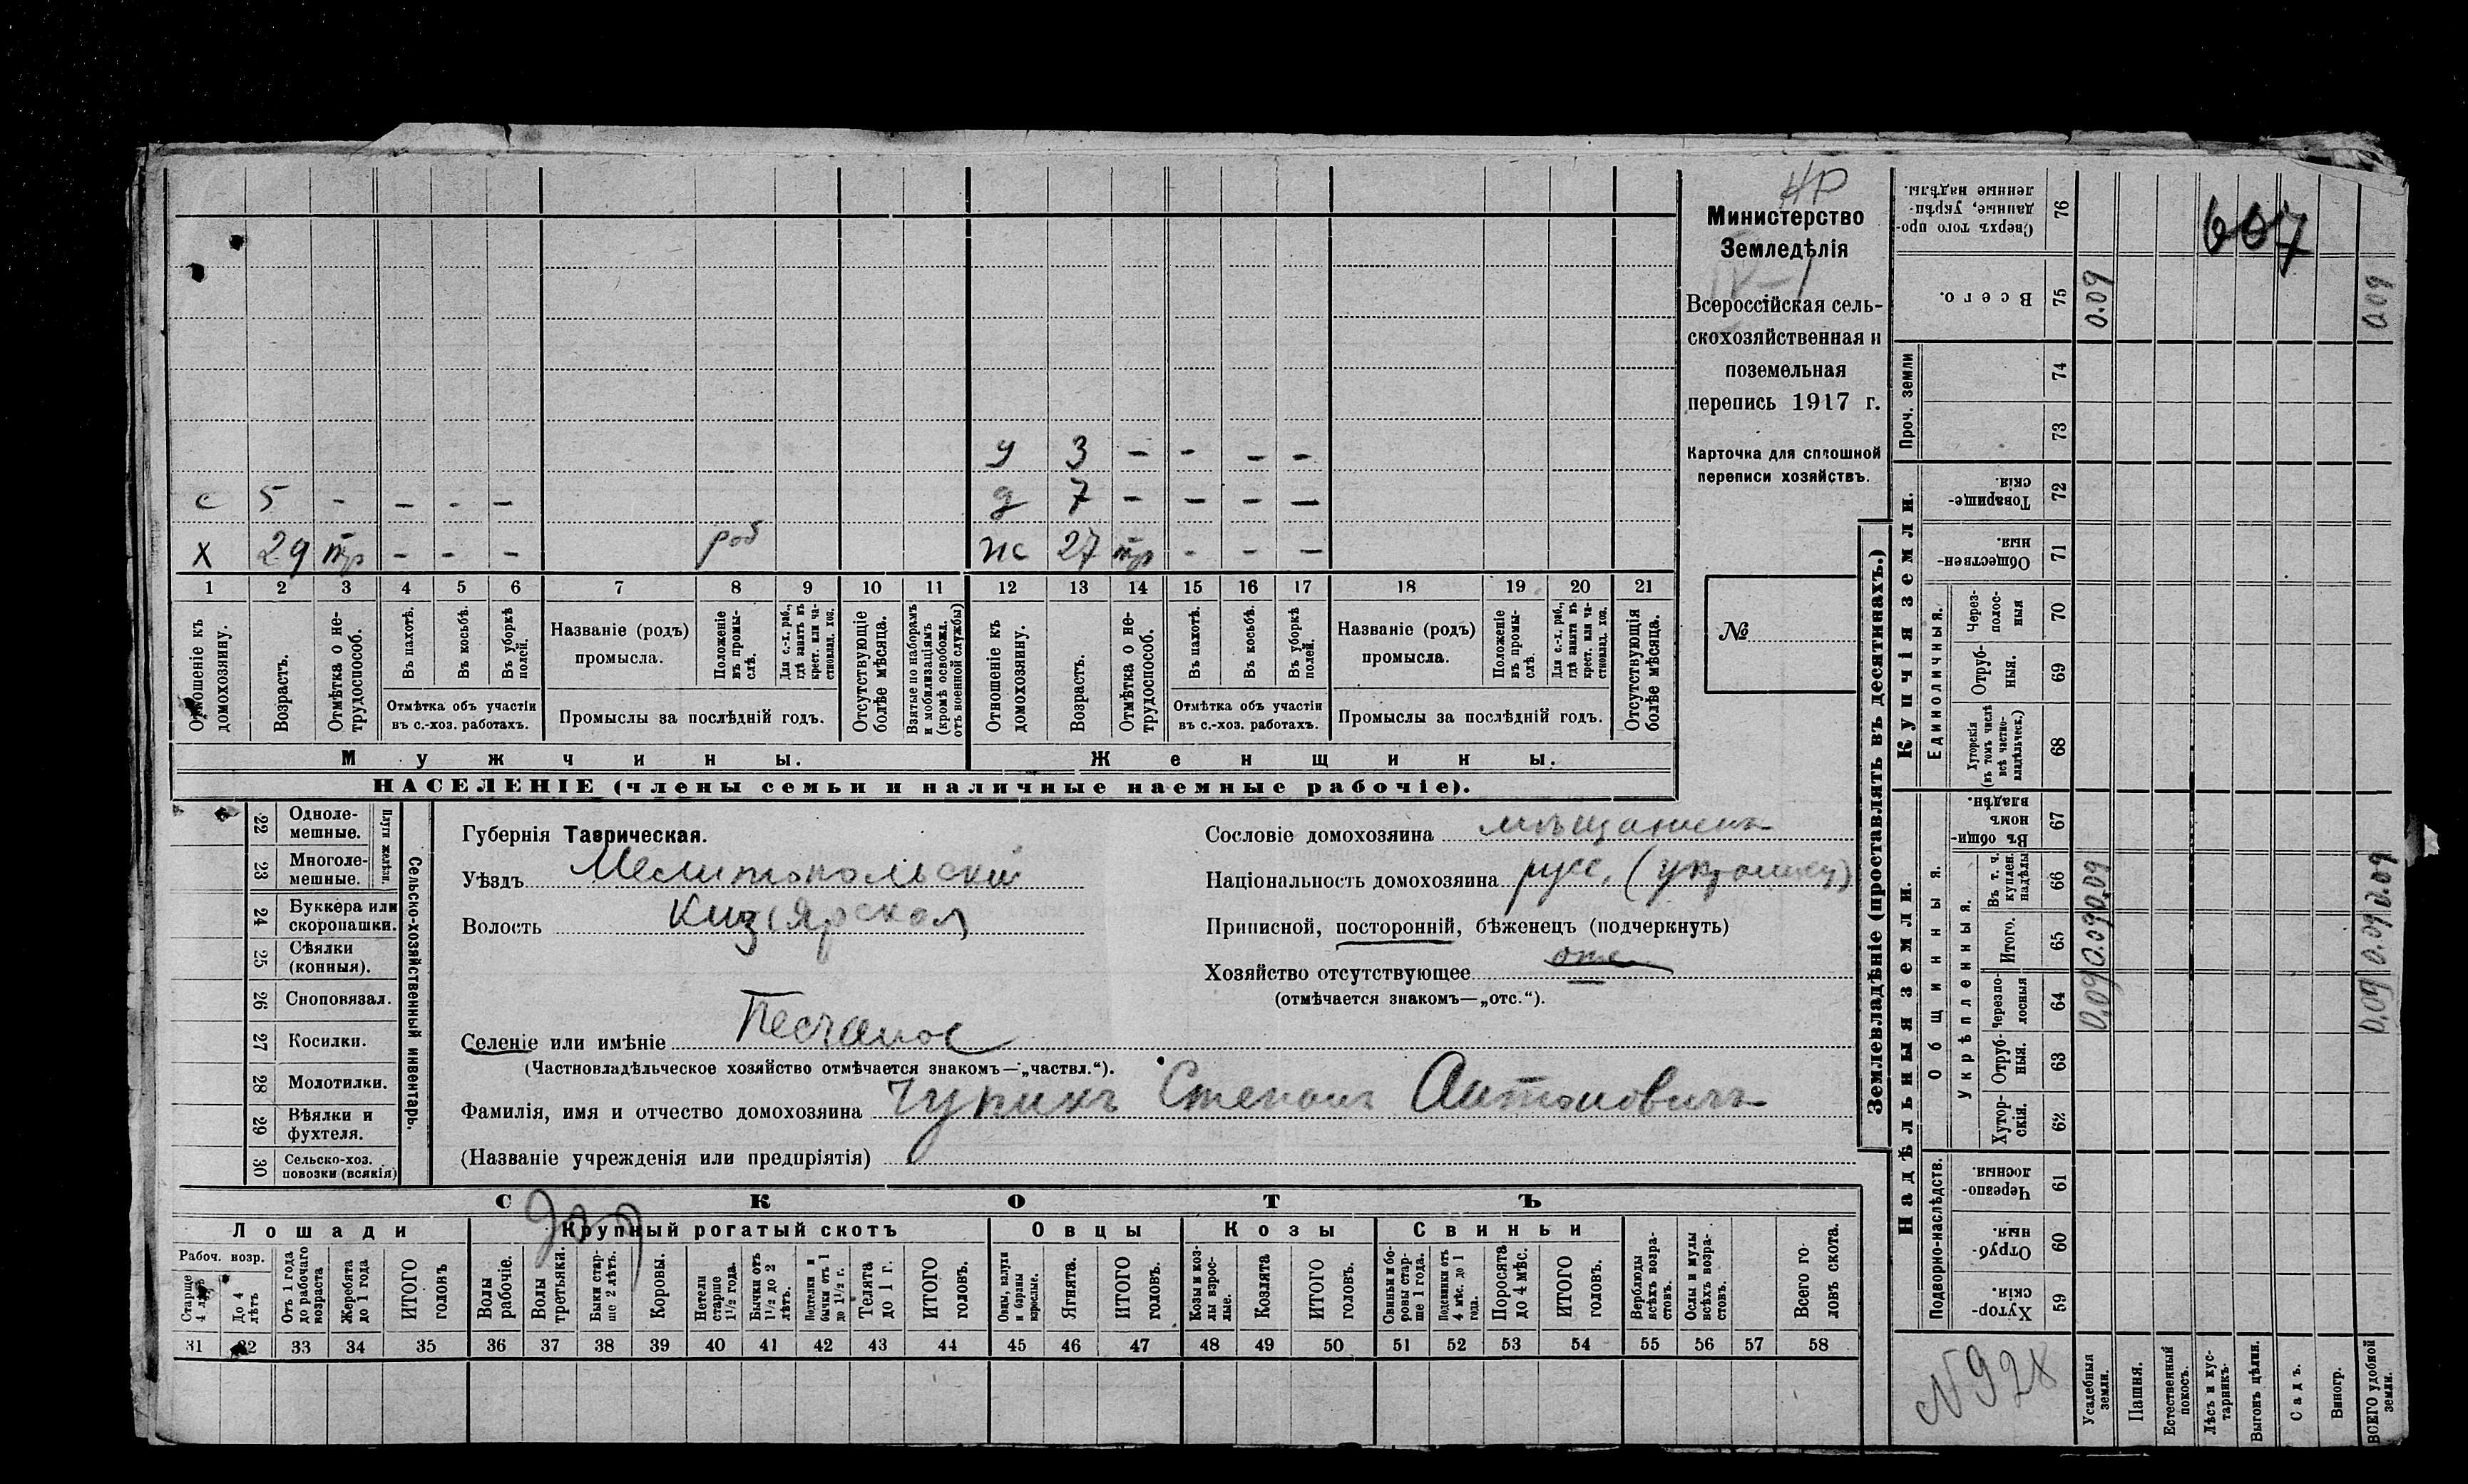 НР
Министерство
Земледѣлія
IV-1
Всероссійская сель-
скохозяйственная и
поземельная
перепись 1917 г.
Карточка для сплошной
переписи хозяйствъ.
№
607
у 3 - - - -
с 5 - - - - д 7 - - - -
х 29 тр - - - раб ж 27 тр - - -
1 2 3 4 5 6 7 8 9 10 11 12 13 14 15 16 17 18 19 20 21
Отношеніе къ домохозяину.
Возрастъ.
Отмѣтка о не-трудоспособ.
Въ пахотѣ.
Въ косьбѣ.
Въ уборкѣ полей.
Отмѣтка объ участіи
въ с.-хоз. работахъ.
Названіе (родъ)
промысла.
Положеніе въ промы-слѣ.
Для с.-х. раб., гдѣ занятъ въ крест. или ча-стновлад. хоз.
Промыслы за послѣдній годъ.
Отсутствующіе болѣе мѣсяца.
Взятые по наборамъ и мобилизаціямъ (кромѣ освобожд. отъ военной службы)
Отношеніе къ домохозяину.
Возрастъ.
Отмѣтка о не-трудоспособ.
Въ пахотѣ.
Въ косьбѣ.
Въ уборкѣ полей.
Отмѣтка объ участіи
въ с.-хоз. работахъ.
Названіе (родъ)
промысла.
Положеніе въ промы-слѣ.
Для с.-х. раб., гдѣ занята въ крест. или ча-стновлад. хоз.
Промыслы за послѣдній годъ.
Отсутствующія болѣе мѣсяца.
Мужчины. Женщины.
НАСЕЛЕНІЕ (члены семьи и наличные наемные рабочіе).
22 Одноле-мешные.
23 Многоле-мешные.
Плуги желѣзн.
24 Буккера или скоропашки.
25 Сѣялки (конныя).
26 Сноповязал.
27 Косилки.
28 Молотилки.
29 Вѣялки и фухтеля.
30 Сельско-хоз. повозки (всякія)
Сельско-хозяйственный инвентарь.
Губернія Таврическая.
Уѣздъ Мелитопольскій
Волость Кизіярская
Селеніе или имѣніе Песчаное
(Частновладѣльческое хозяйство отмѣчается знакомъ—„частвл.“).
Фамилія, имя и отчество домохозяина Чурихъ Степанъ Антоновичъ
(Названіе учрежденія или предпріятія)
Сословіе домохозяина мѣщанинъ
Національность домохозяина русс. (украинец)
Приписной, посторонній, бѣженецъ (подчеркнуть)
Хозяйство отсутствующее отс.
(отмѣчается знакомъ—„отс.“).
СКОТЪ
Лошади Крупный рогатый скотъ Овцы Козы Свиньи
Рабоч. возр.
Старше 4 лѣтъ
До 4 лѣтъ
Отъ 1 года до рабочаго возраста
Жеребята до 1 года
ИТОГО головъ
Волы рабочіе.
Волы третьяки.
Быки стар-ше 2 лѣтъ.
Коровы.
Нетели старше 1½ года.
Бычки отъ 1½ до 2 лѣтъ.
Подтелки и бычки отъ 1 до 1½ г.
Телята до 1 г.
ИТОГО головъ.
Овцы, валухи и бараны взрослые.
Ягнята.
ИТОГО головъ.
Козы и коз-лы взрос-лые.
Козлята
ИТОГО головъ.
Свиньи и бо-ровы стар-ше 1 года.
Подсвинки отъ 4 мѣс. до 1 года.
Поросята до 4 мѣс.
ИТОГО головъ.
Верблюды всѣхъ возра-стовъ.
Ослы и мулы всѣхъ возра-стовъ.
Всего го-ловъ скота.
31 32 33 34 35 36 37 38 39 40 41 42 43 44 45 46 47 48 49 50 51 52 53 54 55 56 57 58
Землевладѣніе (проставлять въ десятинахъ.)
Надѣльныя земли. Купчія земли. Проч. земли
Подворно-наслѣдств.
Общинныя.
Укрѣпленныя.
Единоличныя.
Хутор-скія. 59
Отруб-ныя. 60
Черезпо-лосныя. 61
Хутор-скія. 62
Отруб-ныя. 63
Черезпо-лосныя 64
Итого. 65
Въ т. ч. куплен. надѣлы 66
Въ общин-номъ владѣн. 67
Хуторскія (въ томъ числѣ всѣ частно-владѣльческ.) 68
Отруб-ныя. 69
Через-полос-ныя 70
Обществен-ныя. 71
Товарище-скія. 72
73
74
Всего. 75
Сверхъ того про-данные, укрѣп-ленные надѣлы. 76
№ 928
Усадебныя земли. 0,09 0.09 0,09 0.09
Пашня.
Естественный покосъ.
Лѣсъ и кус-тарникъ.
Выгонъ цѣлин.
Садъ.
Виногр.
ВСЕГО удобной земли. 0,09 0.09 0.09 0.09